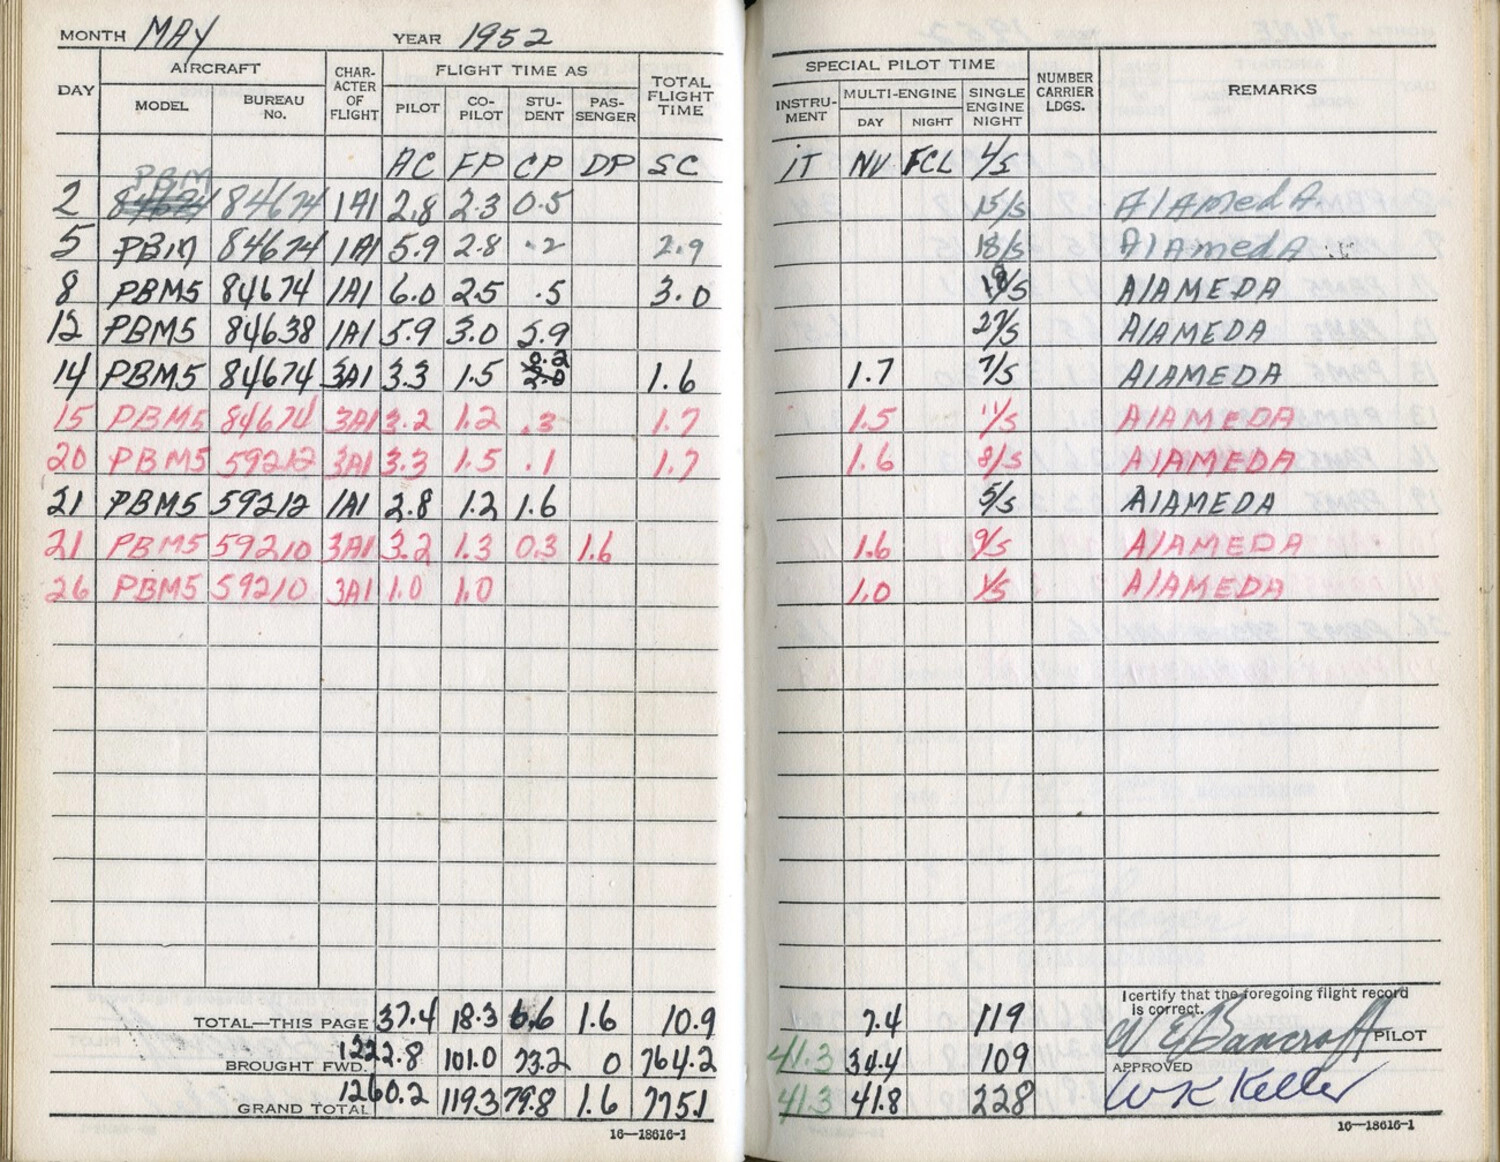 MONTH MAY YEAR 1952
DAY AIRCRAFT CHARACTER OF FLIGHT FLIGHT TIME AS TOTAL FLIGHT TIME
MODEL BUREAU No. PILOT CO-PILOT STUDENT PASSENGER
AC FP CP DP SC
PBM
2 84674 1A1 2.8 2.3 0.5
5 PBM 84674 1A1 5.9 2.8 .2 2.9
8 PBM5 84674 1A1 6.0 2.5 .5 3.0
12 PBM5 84638 1A1 5.9 3.0 2.9
14 PBM5 84674 3A1 3.3 1.5 0.2 1.6
15 PBM5 84674 3A1 3.2 1.2 .3 1.7
20 PBM5 59212 3A1 3.3 1.5 .1 1.7
21 PBM5 59212 1A1 2.8 1.2 1.6
21 PBM5 59210 3A1 3.2 1.3 0.3 1.6
26 PBM5 59210 3A1 1.0 1.0
TOTAL—THIS PAGE 37.4 18.3 6.6 1.6 10.9
BROUGHT FWD. 1222.8 101.0 73.2 0 764.2
GRAND TOTAL 1260.2 119.3 79.8 1.6 775.1
16—18616-1
SPECIAL PILOT TIME NUMBER CARRIER LDGS. REMARKS
INSTRUMENT MULTI-ENGINE SINGLE ENGINE NIGHT
DAY NIGHT
IT NV FCL L/S
15/S ALAMEDA
18/S ALAMEDA
18/S ALAMEDA
27/S ALAMEDA
1.7 7/S ALAMEDA
1.5 11/S ALAMEDA
1.6 8/S ALAMEDA
5/S ALAMEDA
1.6 9/S ALAMEDA
1.0 1/S ALAMEDA
I certify that the foregoing flight record is correct.
7.4 119 W E Bancroft PILOT
41.3 34.4 109 APPROVED
41.3 41.8 228 W K Keller
16—18616-1